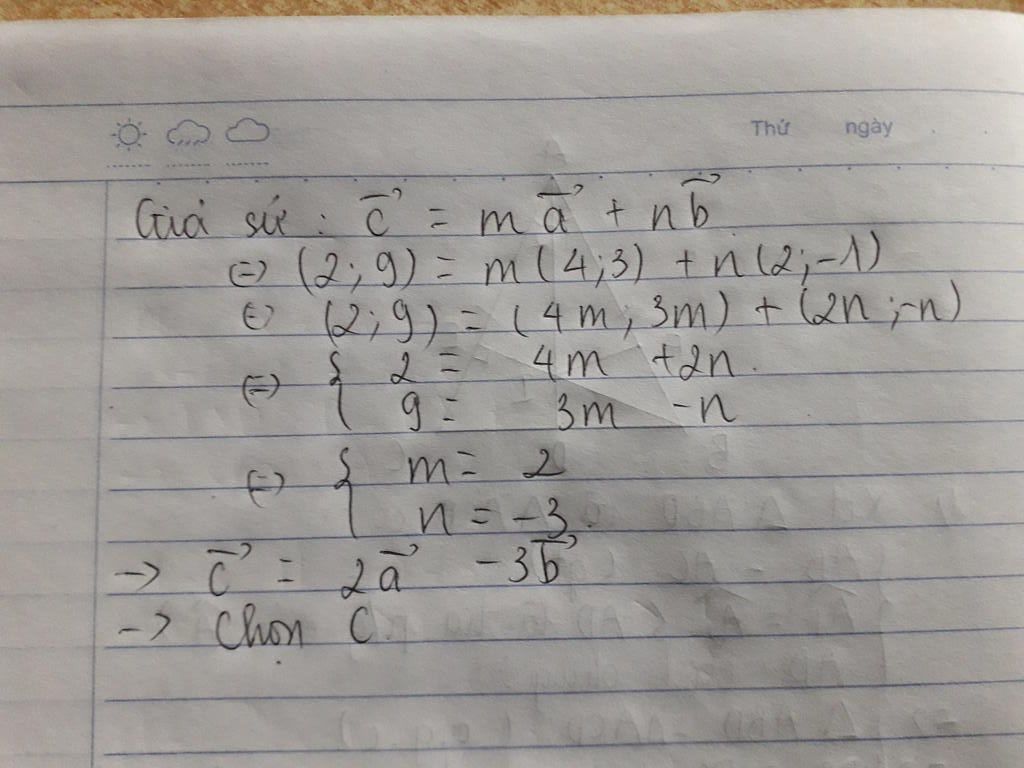 Thứ ngày
Giả sử : c⃗ = m a⃗ + n b⃗
⇔ (2; 9) = m(4;3) + n(2;-1)
⇔ (2; 9) = (4m; 3m) + (2n; -n)
⇔ { 2 = 4m + 2n
9 = 3m - n
⇔ { m = 2
n = -3
-> c⃗ = 2a⃗ - 3b⃗
-> Chọn C